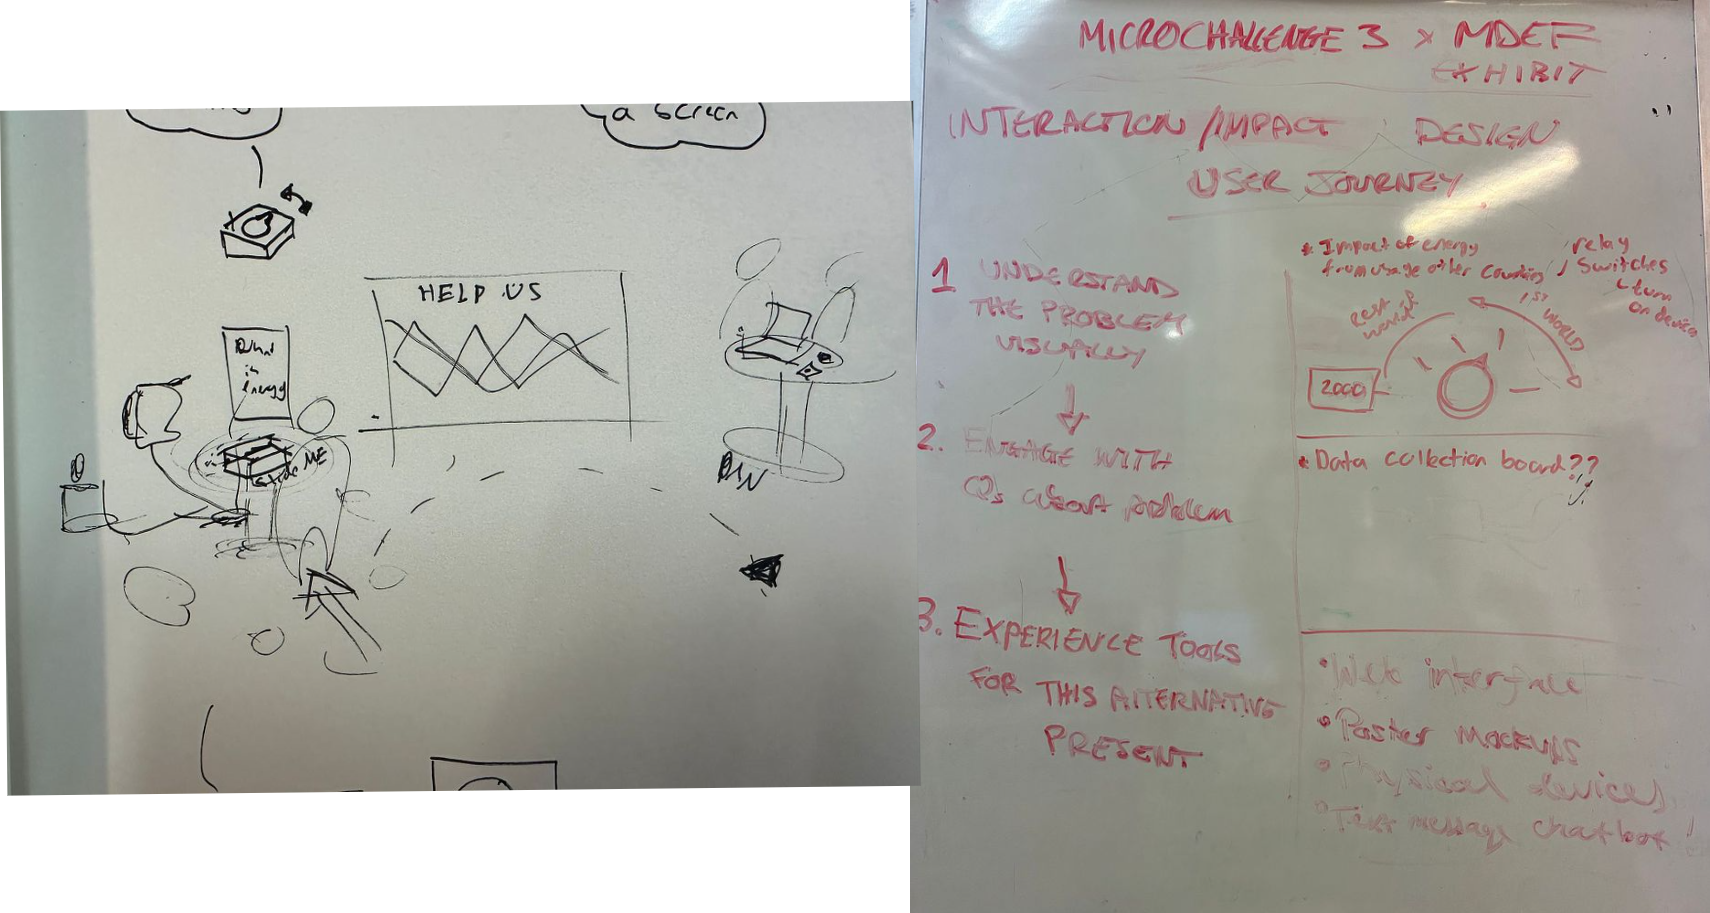 a screen
HELP US
in
energy
ME
MICROCHALLENGE 3 x MDEF
EXHIBIT
INTERACTION/IMPACT DESIGN
USER JOURNEY
1 UNDERSTAND
THE PROBLEM
VISUALLY
2. ENGAGE WITH
Qs about problem
3. EXPERIENCE TOOLS
FOR THIS ALTERNATIVE
PRESENT
* Impact of energy
from usage other countries
relay
switches
turn
on devices
rest of
world
1ST WORLD
2000
* Data collection board??
• Web interface
• Poster mockups
• Physical devices
• Text message chatbot